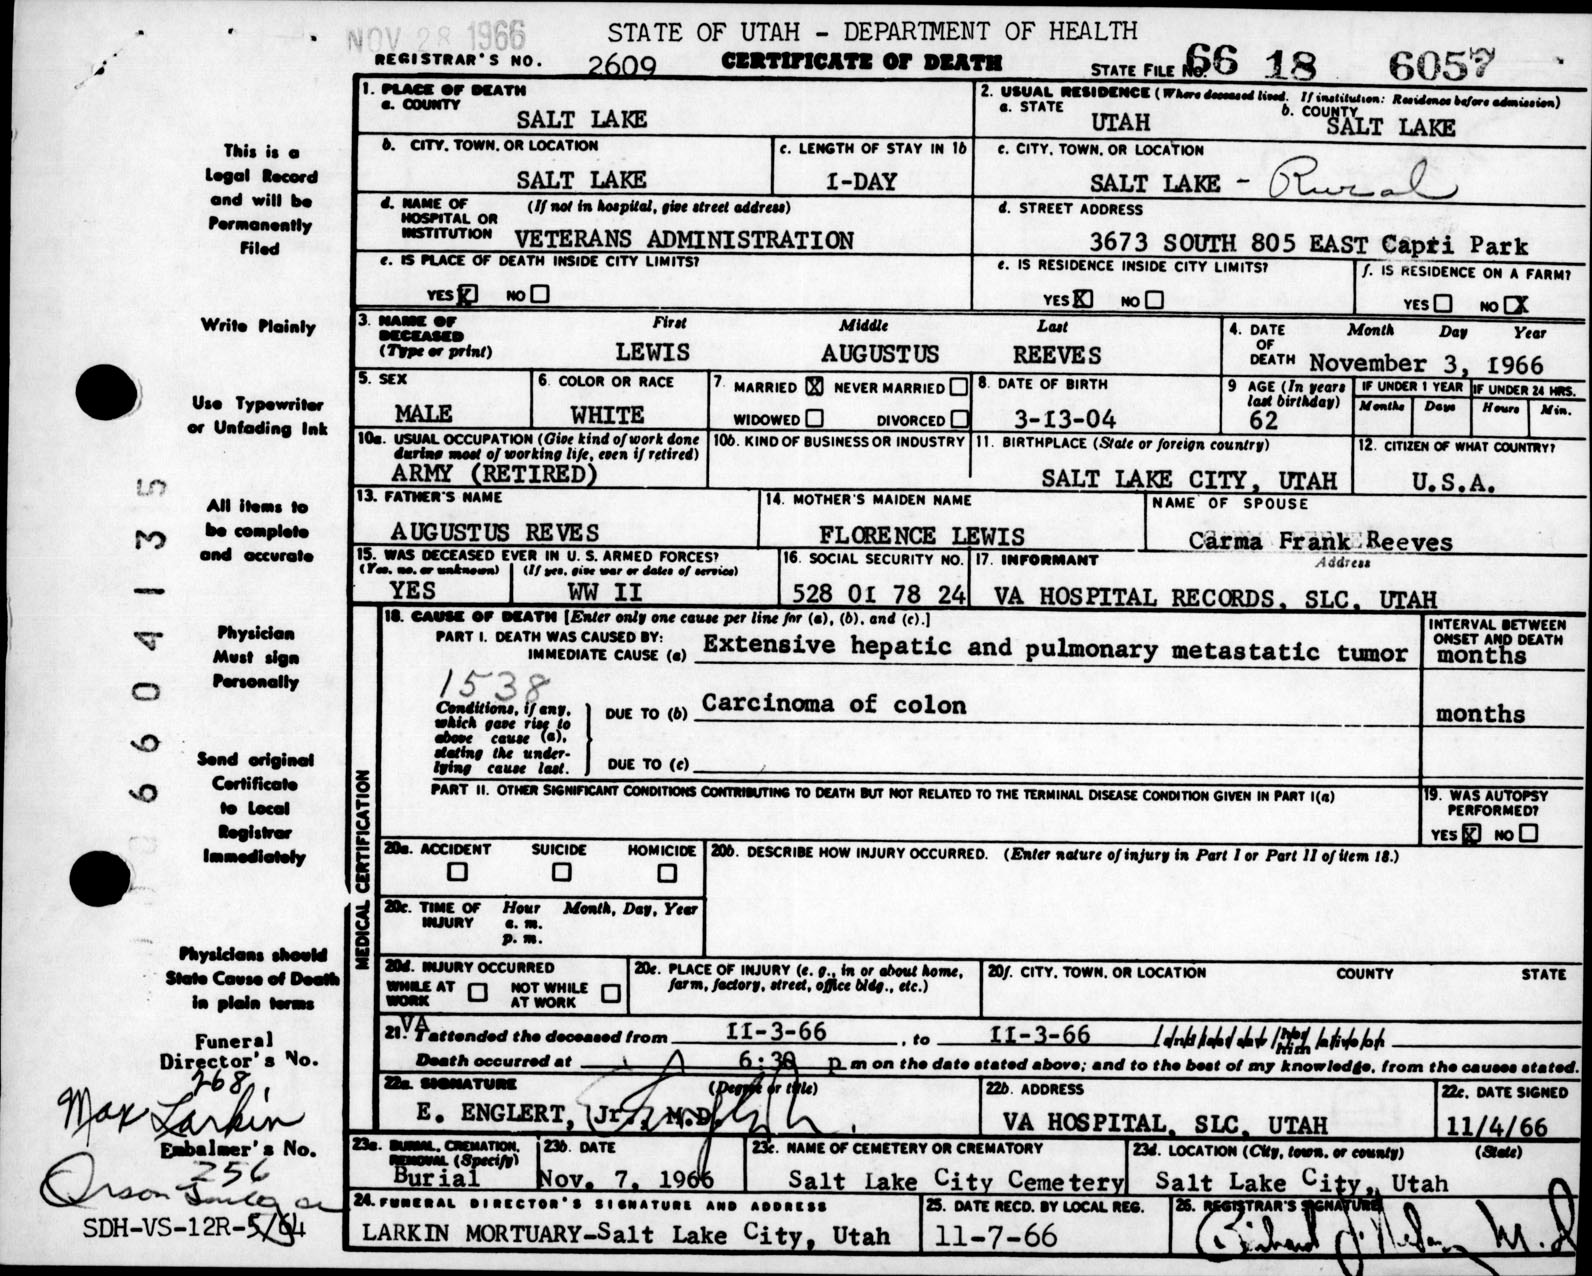 NOV 28 1966
STATE OF UTAH - DEPARTMENT OF HEALTH
REGISTRAR'S NO. 2609
CERTIFICATE OF DEATH
STATE FILE NO. 66 18 6057
This is a
Legal Record
and will be
Permanently
Filed
Write Plainly
Use Typewriter
or Unfading Ink
All items to
be complete
and accurate
Physician
Must sign
Personally
Send original
Certificate
to Local
Registrar
Immediately
Physicians should
State Cause of Death
in plain terms
Funeral
Director's No.
268
Max Larkin
Embalmer's No.
256
SDH-VS-12R-5/64
66041135
1. PLACE OF DEATH
a. COUNTY
SALT LAKE
2. USUAL RESIDENCE (Where deceased lived. If institution: Residence before admission)
a. STATE
UTAH
b. COUNTY
SALT LAKE
b. CITY, TOWN, OR LOCATION
SALT LAKE
c. LENGTH OF STAY IN 1b
I-DAY
c. CITY, TOWN, OR LOCATION
SALT LAKE - Rural
d. NAME OF HOSPITAL OR INSTITUTION
(If not in hospital, give street address)
VETERANS ADMINISTRATION
d. STREET ADDRESS
3673 SOUTH 805 EAST Capri Park
e. IS PLACE OF DEATH INSIDE CITY LIMITS?
YES X NO
e. IS RESIDENCE INSIDE CITY LIMITS?
YES X NO
f. IS RESIDENCE ON A FARM?
YES NO X
3. NAME OF DECEASED
(Type or print)
First Middle Last
LEWIS AUGUSTUS REEVES
4. DATE OF DEATH
Month Day Year
November 3, 1966
5. SEX
MALE
6. COLOR OR RACE
WHITE
7. MARRIED X NEVER MARRIED
WIDOWED DIVORCED
8. DATE OF BIRTH
3-13-04
9 AGE (In years last birthday)
62
IF UNDER 1 YEAR
Months Days
IF UNDER 24 HRS.
Hours Min.
10a. USUAL OCCUPATION (Give kind of work done during most of working life, even if retired)
ARMY (RETIRED)
10b. KIND OF BUSINESS OR INDUSTRY
11. BIRTHPLACE (State or foreign country)
SALT LAKE CITY, UTAH
12. CITIZEN OF WHAT COUNTRY?
U.S.A.
13. FATHER'S NAME
AUGUSTUS REVES
14. MOTHER'S MAIDEN NAME
FLORENCE LEWIS
NAME OF SPOUSE
Carma Frank Reeves
15. WAS DECEASED EVER IN U. S. ARMED FORCES?
(Yes, no, or unknown) (If yes, give war or dates of service)
YES WW II
16. SOCIAL SECURITY NO.
528 OI 78 24
17. INFORMANT
Address
VA HOSPITAL RECORDS, SLC, UTAH
MEDICAL CERTIFICATION
18. CAUSE OF DEATH [Enter only one cause per line for (a), (b), and (c).]
PART I. DEATH WAS CAUSED BY:
IMMEDIATE CAUSE (a) Extensive hepatic and pulmonary metastatic tumor
INTERVAL BETWEEN
ONSET AND DEATH
months
1538
Conditions, if any, which gave rise to above cause (a), stating the underlying cause last.
DUE TO (b) Carcinoma of colon
months
DUE TO (c)
PART II. OTHER SIGNIFICANT CONDITIONS CONTRIBUTING TO DEATH BUT NOT RELATED TO THE TERMINAL DISEASE CONDITION GIVEN IN PART I(a)
19. WAS AUTOPSY PERFORMED?
YES X NO
20a. ACCIDENT SUICIDE HOMICIDE
20b. DESCRIBE HOW INJURY OCCURRED. (Enter nature of injury in Part I or Part II of item 18.)
20c. TIME OF INJURY
Hour Month, Day, Year
a. m.
p. m.
20d. INJURY OCCURRED
WHILE AT WORK NOT WHILE AT WORK
20e. PLACE OF INJURY (e. g., in or about home, farm, factory, street, office bldg., etc.)
20f. CITY, TOWN, OR LOCATION COUNTY STATE
21. VA attended the deceased from II-3-66, to II-3-66
Death occurred at 6:30 p. m on the date stated above; and to the best of my knowledge, from the causes stated.
22a. SIGNATURE (Degree or title)
E. ENGLERT, Jr., M.D.
22b. ADDRESS
VA HOSPITAL, SLC, UTAH
22c. DATE SIGNED
11/4/66
23a. BURIAL, CREMATION, REMOVAL (Specify)
Burial
23b. DATE
Nov. 7, 1966
23c. NAME OF CEMETERY OR CREMATORY
Salt Lake City Cemetery
23d. LOCATION (City, town, or county) (State)
Salt Lake City, Utah
24. FUNERAL DIRECTOR'S SIGNATURE AND ADDRESS
LARKIN MORTUARY-Salt Lake City, Utah
25. DATE RECD. BY LOCAL REG.
11-7-66
26. REGISTRAR'S SIGNATURE